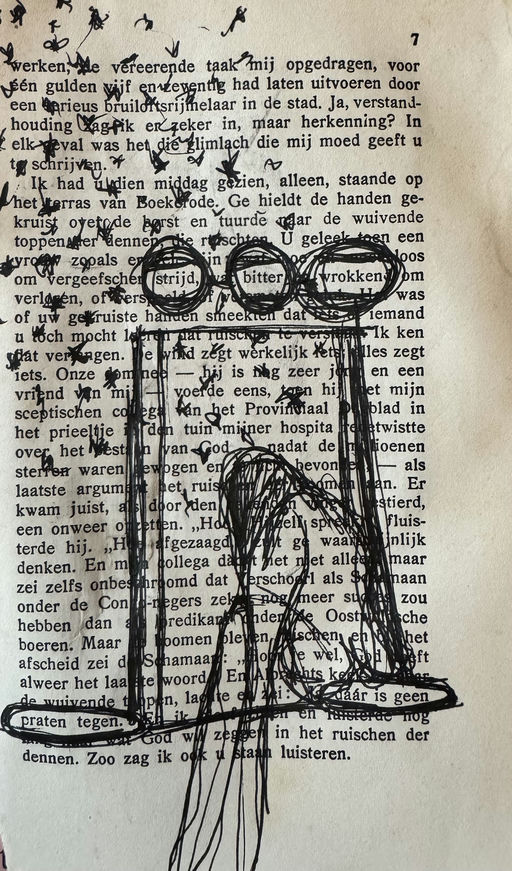 7
werken, de vereerende taak mij opgedragen, voor
één gulden vijf en zeventig had laten uitvoeren door
een serieus bruiloftsrijmelaar in de stad. Ja, verstand-
houding zag ik er zeker in, maar herkenning? In
elk geval was het die glimlach die mij moed geeft u
te schrijven.
Ik had u dien middag gezien, alleen, staande op
het terras van Boekerode. Ge hieldt de handen ge-
kruist over de borst en tuurde naar de wuivende
toppen der dennen, die ruischten. U geleek toen een
vrouw zooals en zijn
om vergeefschen strijd, bitter wrokken om
verloren, of was
of uw gekruiste handen smeekten dat iets iemand
u toch mocht leeren dat ruischen te verstaan. Ik ken
dat verlangen. De wind zegt werkelijk iets, alles zegt
iets. Onze dominee — hij is nog zeer jong en een
vriend van mij — voerde eens, toen hij met mijn
sceptischen collega van het Provinciaal Dagblad in
het prieeltje in den tuin mijner hospita redetwistte
over het bestaan van God nadat de millioenen
sterren waren bewogen en bevonden — als
laatste argument het ruischen der boomen aan. Er
kwam juist, als door den
een onweer opzetten. „Hoor fluis-
terde hij. „Het afgezaagd,
denken. En mijn collega dacht het niet alleen, maar
zei zelfs onbeschroomd dat verschoorl als Schamaan
onder de Congo-negers zeker nog meer succes zou
hebben dan als predikant onder de
boeren. Maar de boomen bleven ruischen en het
afscheid zei de Schamaan: „hoor je wel, God heeft
alweer het laatste woord. En Albrechts keek
de wuivende toppen, lachte en zei: dáár is geen
praten tegen. En ik en luisterde nog
wat God wil zeggen in het ruischen der
dennen. Zoo zag ik ook u staan luisteren.